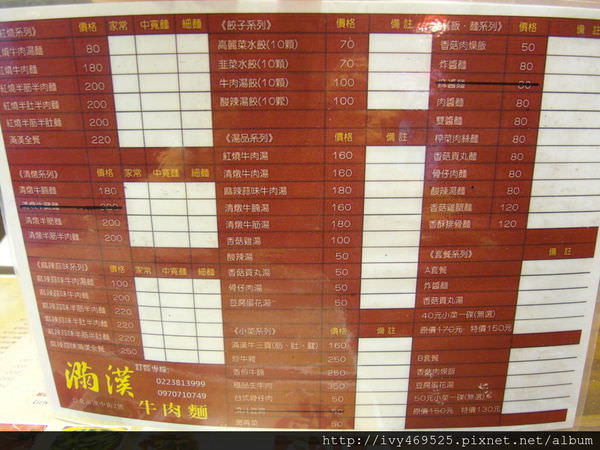 紅燒系列》 價格 家常 中寬麵 細麵
紅燒牛肉湯麵 80
紅燒牛肉麵 180
紅燒半筋半肉麵 200
紅燒半肚半肉麵 200
紅燒半筋半肚麵 200
滿漢全餐 220
《清燉系列》 價格 家常 中寬麵 細麵
清燉牛腩麵 180
200
清燉牛筋麵 200
清燉半筋半肉麵 200
《麻辣蒜味系列》 價格 家常 中寬麵 細麵
麻辣蒜味牛肉湯麵 100
麻辣蒜味牛肉麵 200
麻辣蒜味半筋半肉麵 220
麻辣蒜味半肚半肉麵 220
麻辣蒜味半筋半肚麵 220
麻辣蒜味滿漢全餐 250
滿漢
訂餐專線:
0223813999
0970710749
牛肉麵
《餃子系列》 價格 備註
高麗菜水餃(10顆) 70
韭菜水餃(10顆) 70
牛肉湯餃(10顆) 100
酸辣湯餃(10顆) 100
《湯品系列》 價格 備註
紅燒牛肉湯 160
清燉牛肉湯 160
麻辣蒜味牛肉湯 180
清燉牛腩湯 160
清燉牛筋湯 180
香菇雞湯 100
酸辣湯 50
香菇貢丸湯 50
骨仔肉湯 50
豆腐蛋花湯 50
《小菜系列》 價格 備註
滿漢牛三寶(筋、肚、腱) 160
250
香煎牛腱 250
極品炙牛肉 350
台式骨仔肉 50
50
燙青菜 50
飯、麵系列》 價格 備註
香菇肉燥飯 50
炸醬麵 80
麻醬麵 80
肉醬麵 80
雙醬麵 80
榨菜肉絲麵 80
香菇貢丸麵 80
骨仔肉麵 80
酸辣湯麵 80
香菇雞腿麵 120
香酥排骨麵 120
《套餐系列》 備註
A套餐
炸醬麵
香菇貢丸湯
40元小菜一碟(無選)
原價170元 特價150元
B套餐
香菇肉燥飯
豆腐蛋花湯
50元小菜一碟(無選)
原價150元 特價130元
http://ivy469525.pixnet.net/album